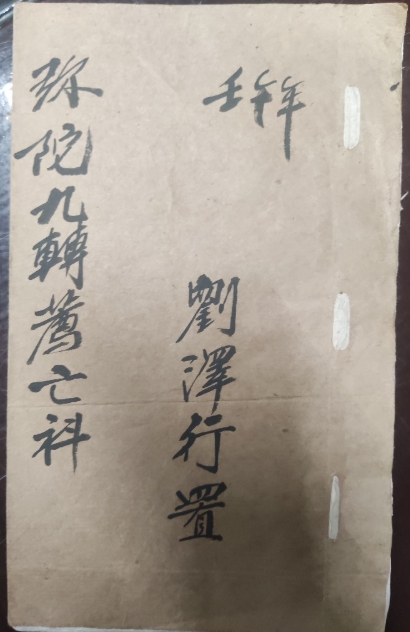 壬午年
劉澤行置
弥陀九轉薦亡科